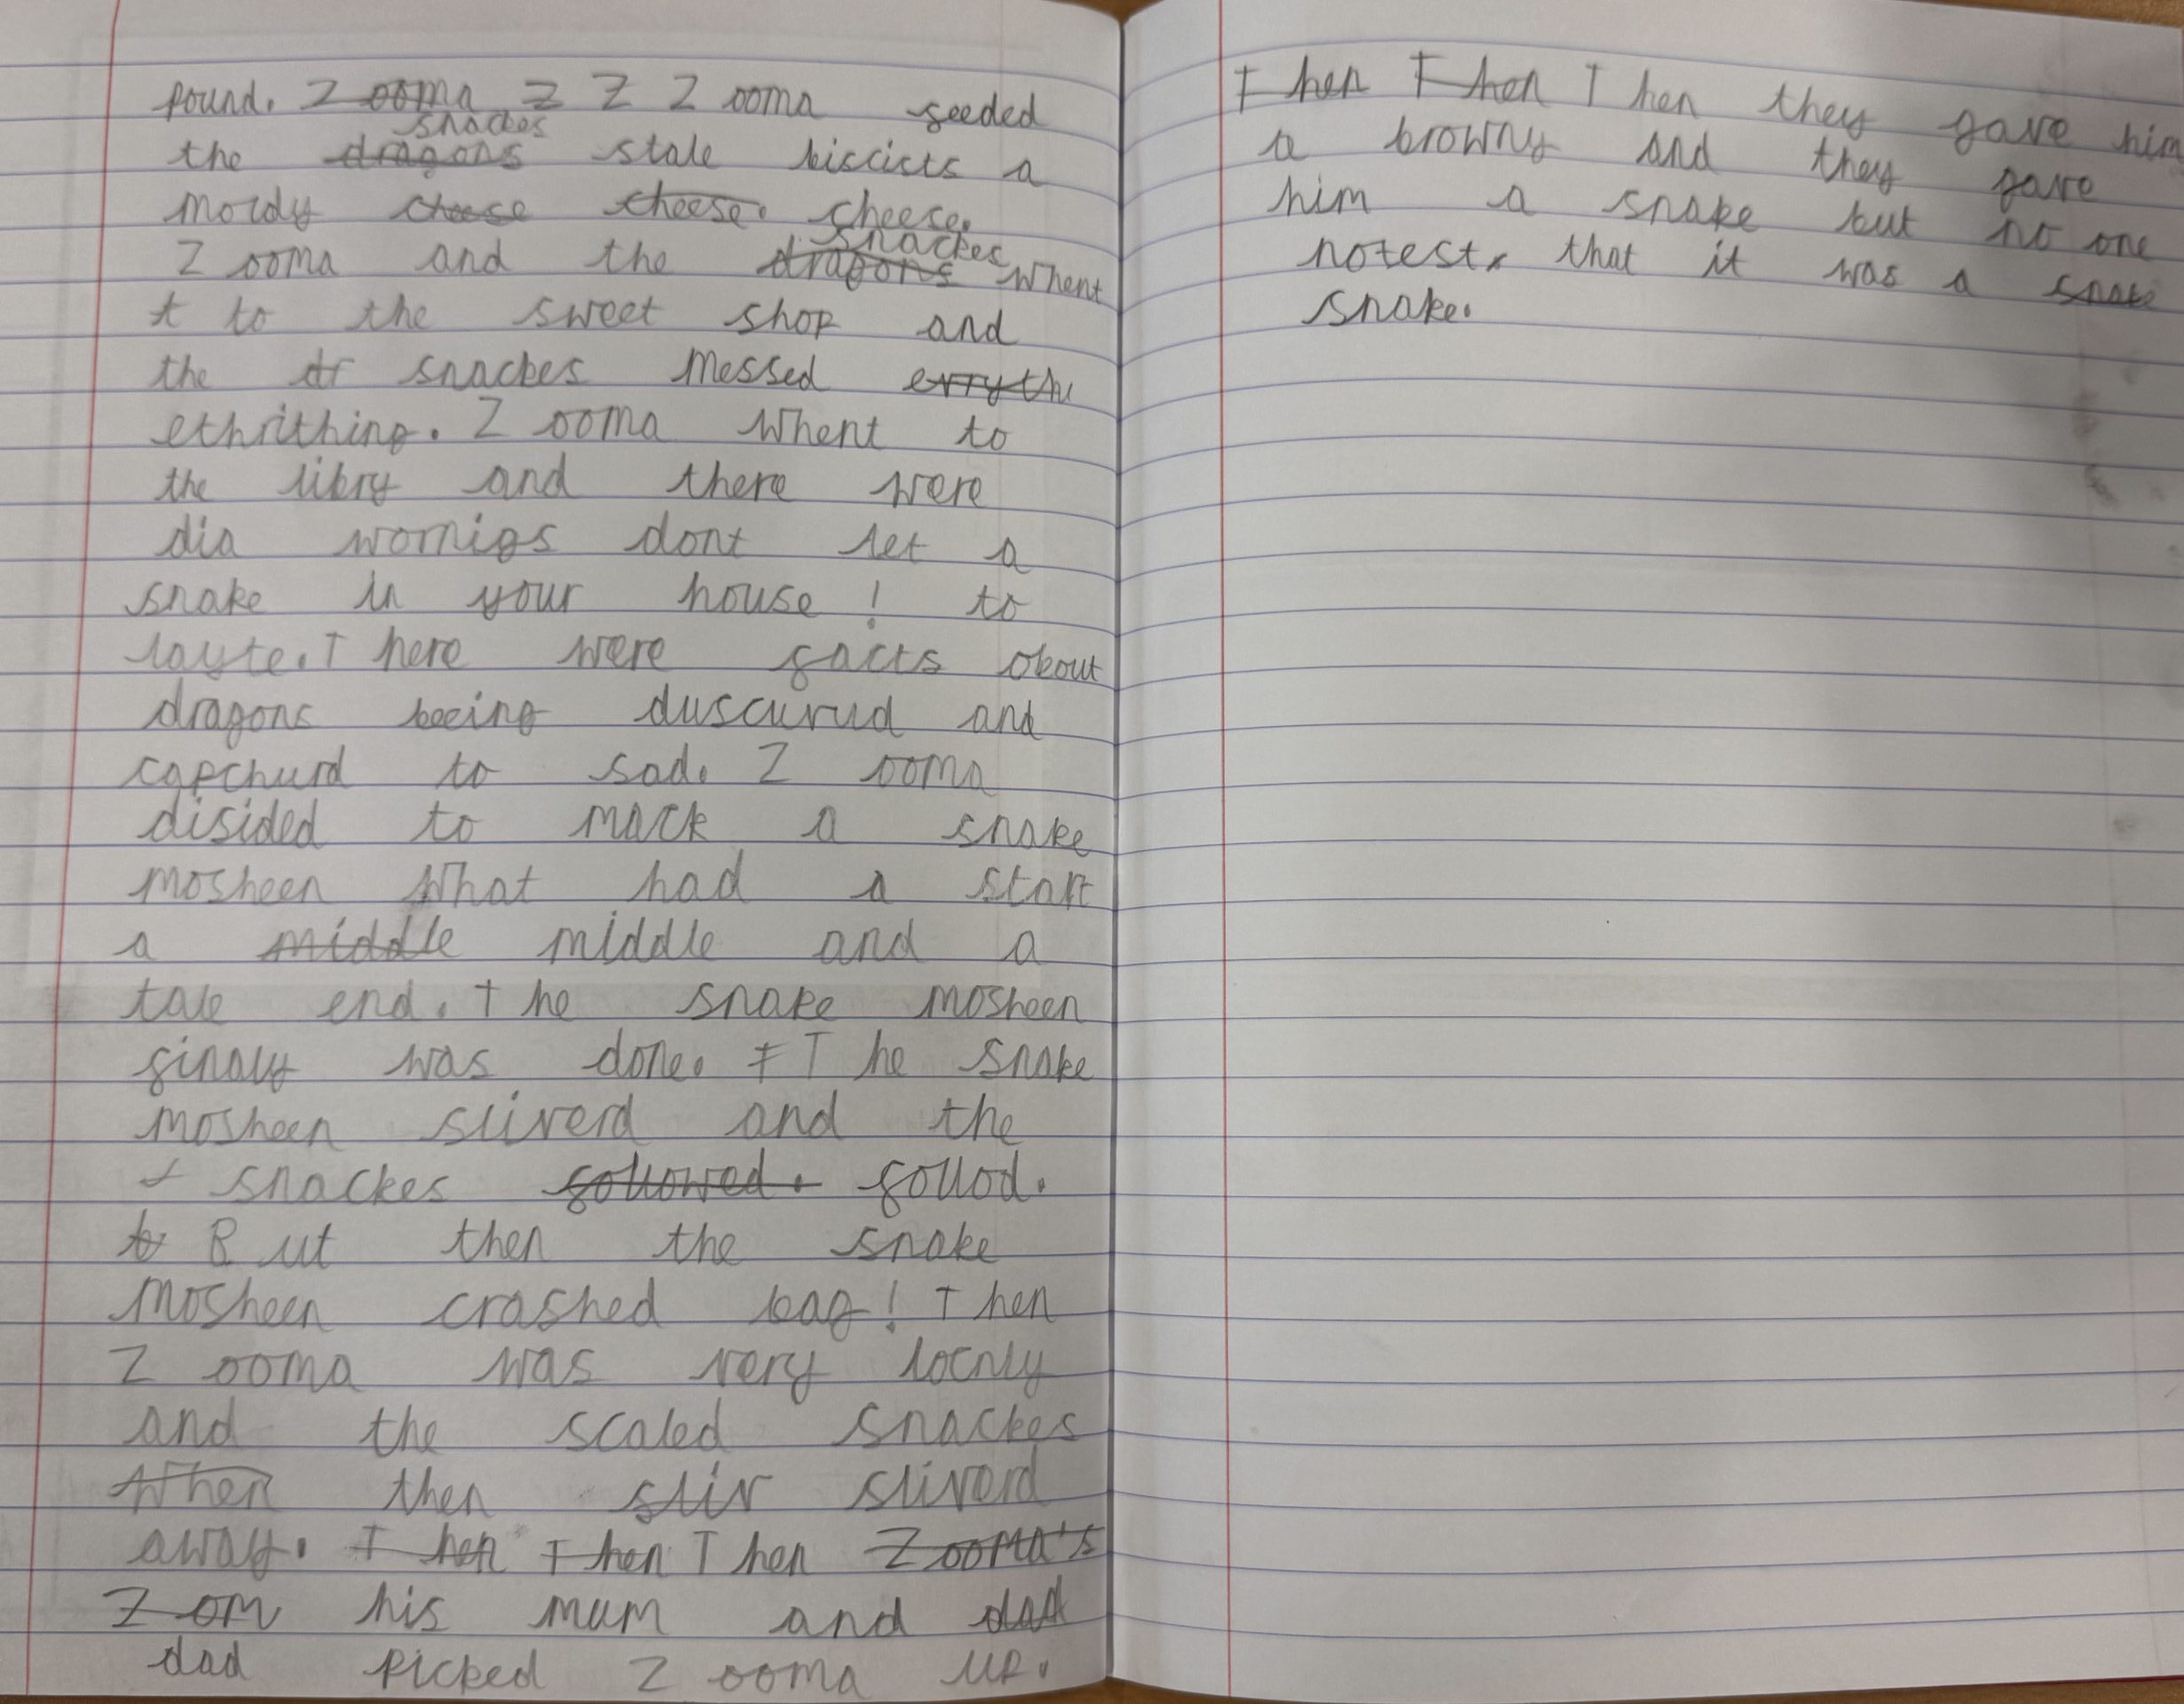 pound. Zooma Z Z Zooma feeded
snackes
the dragons stale biscicts a
moldy cheese cheese. cheese.
snackes
Zooma and the dragons whent
t to the sweet shop and
the dr snackes messed errythi
ethrithing. Zooma whent to
the libry and there were
dia wornigs dont let a
snake in your house! to
layte. There were facts obout
dragons beeing duscuvud and
capchurd to sad. Zooma
disided to mack a snake
mosheen what had a start
a middle middle and a
tale end. The snake mosheen
finaly was done. T The snake
mosheen sliverd and the
snackes followed. follod.
But then the snake
mosheen crashed bag! Then
Zooma was very locnly
and the scaled snackes
when then sliv sliverd
away. Then Then Then Zooma's
Zom his mum and dad
dad picked Zooma up.
Then Then Then they gave him
a browny and they gave
him a snake but no one
notest that it was a snake
snake.